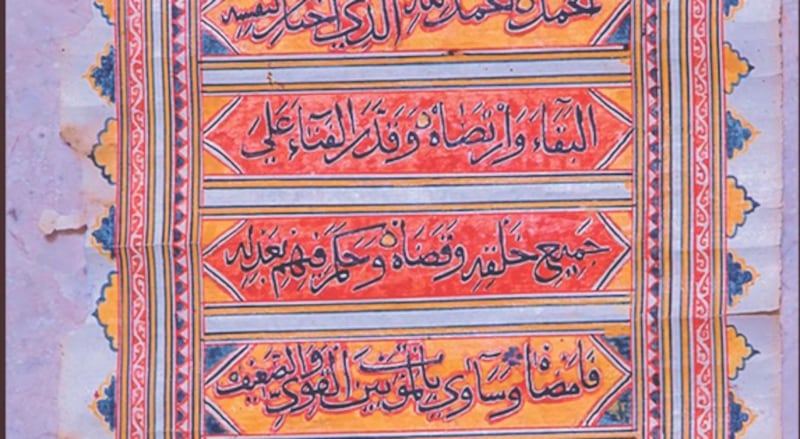 نحمده محمد لله الذي اختار لنفسه
البقآء وَارْتضاهُ وَقَدَّرَ الفنآء عَلى
جَميع خلقه وقضاهُ وَحكم فيهم بعدله
فامضاهُ وسَآوى بالموت بين القوى والضعيف